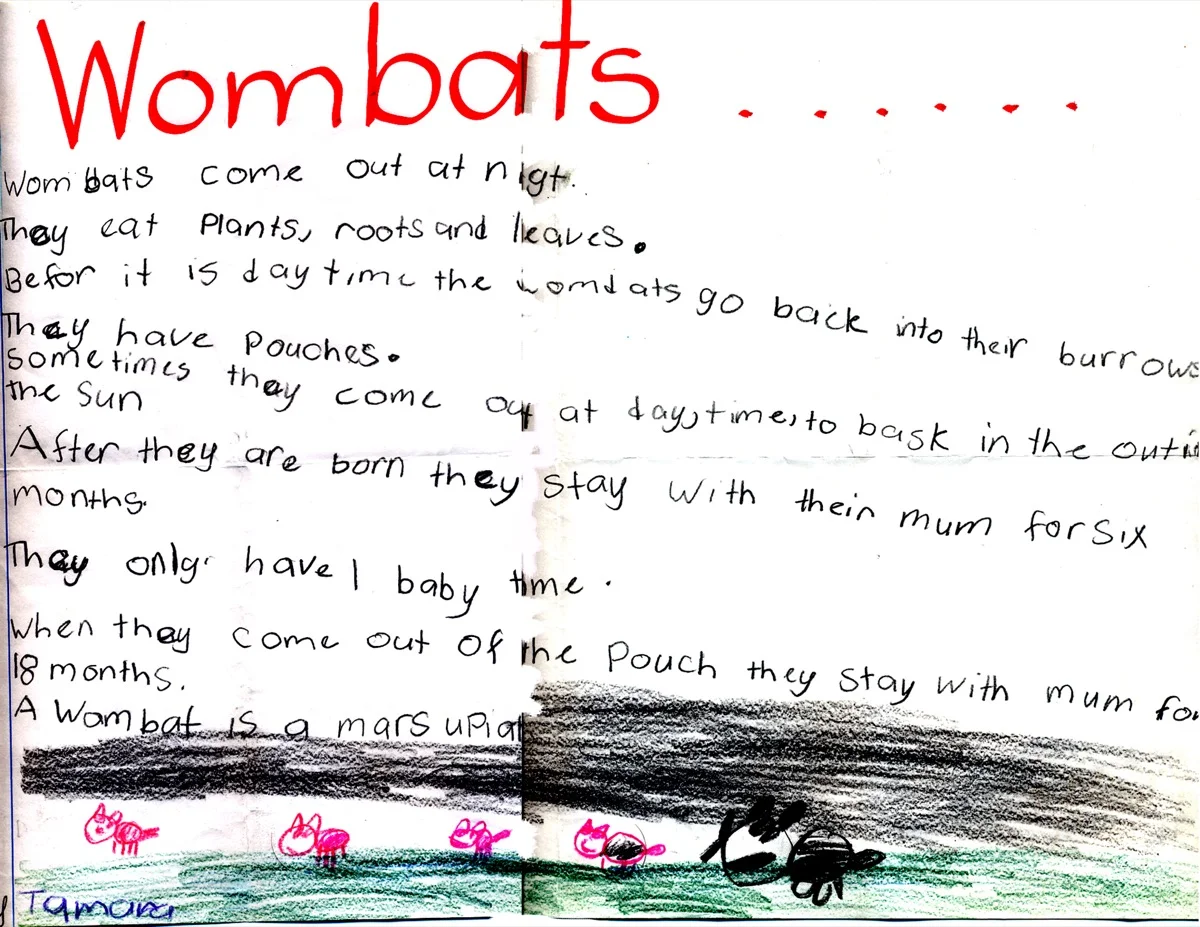 Wombats . . . . . .
Wombats come out at nigt.
They eat Plants, roots and leaves.
Befor it is day time the womdats go back into their burrows
They have Pouches.
sometimes they come out at day,time,to bask in the
the Sun
After they are born they stay with their mum for six
months.
They only have 1 baby time.
when they come out of the Pouch they stay with mum for
18 months.
A Wombat is a marsupial
Tamara